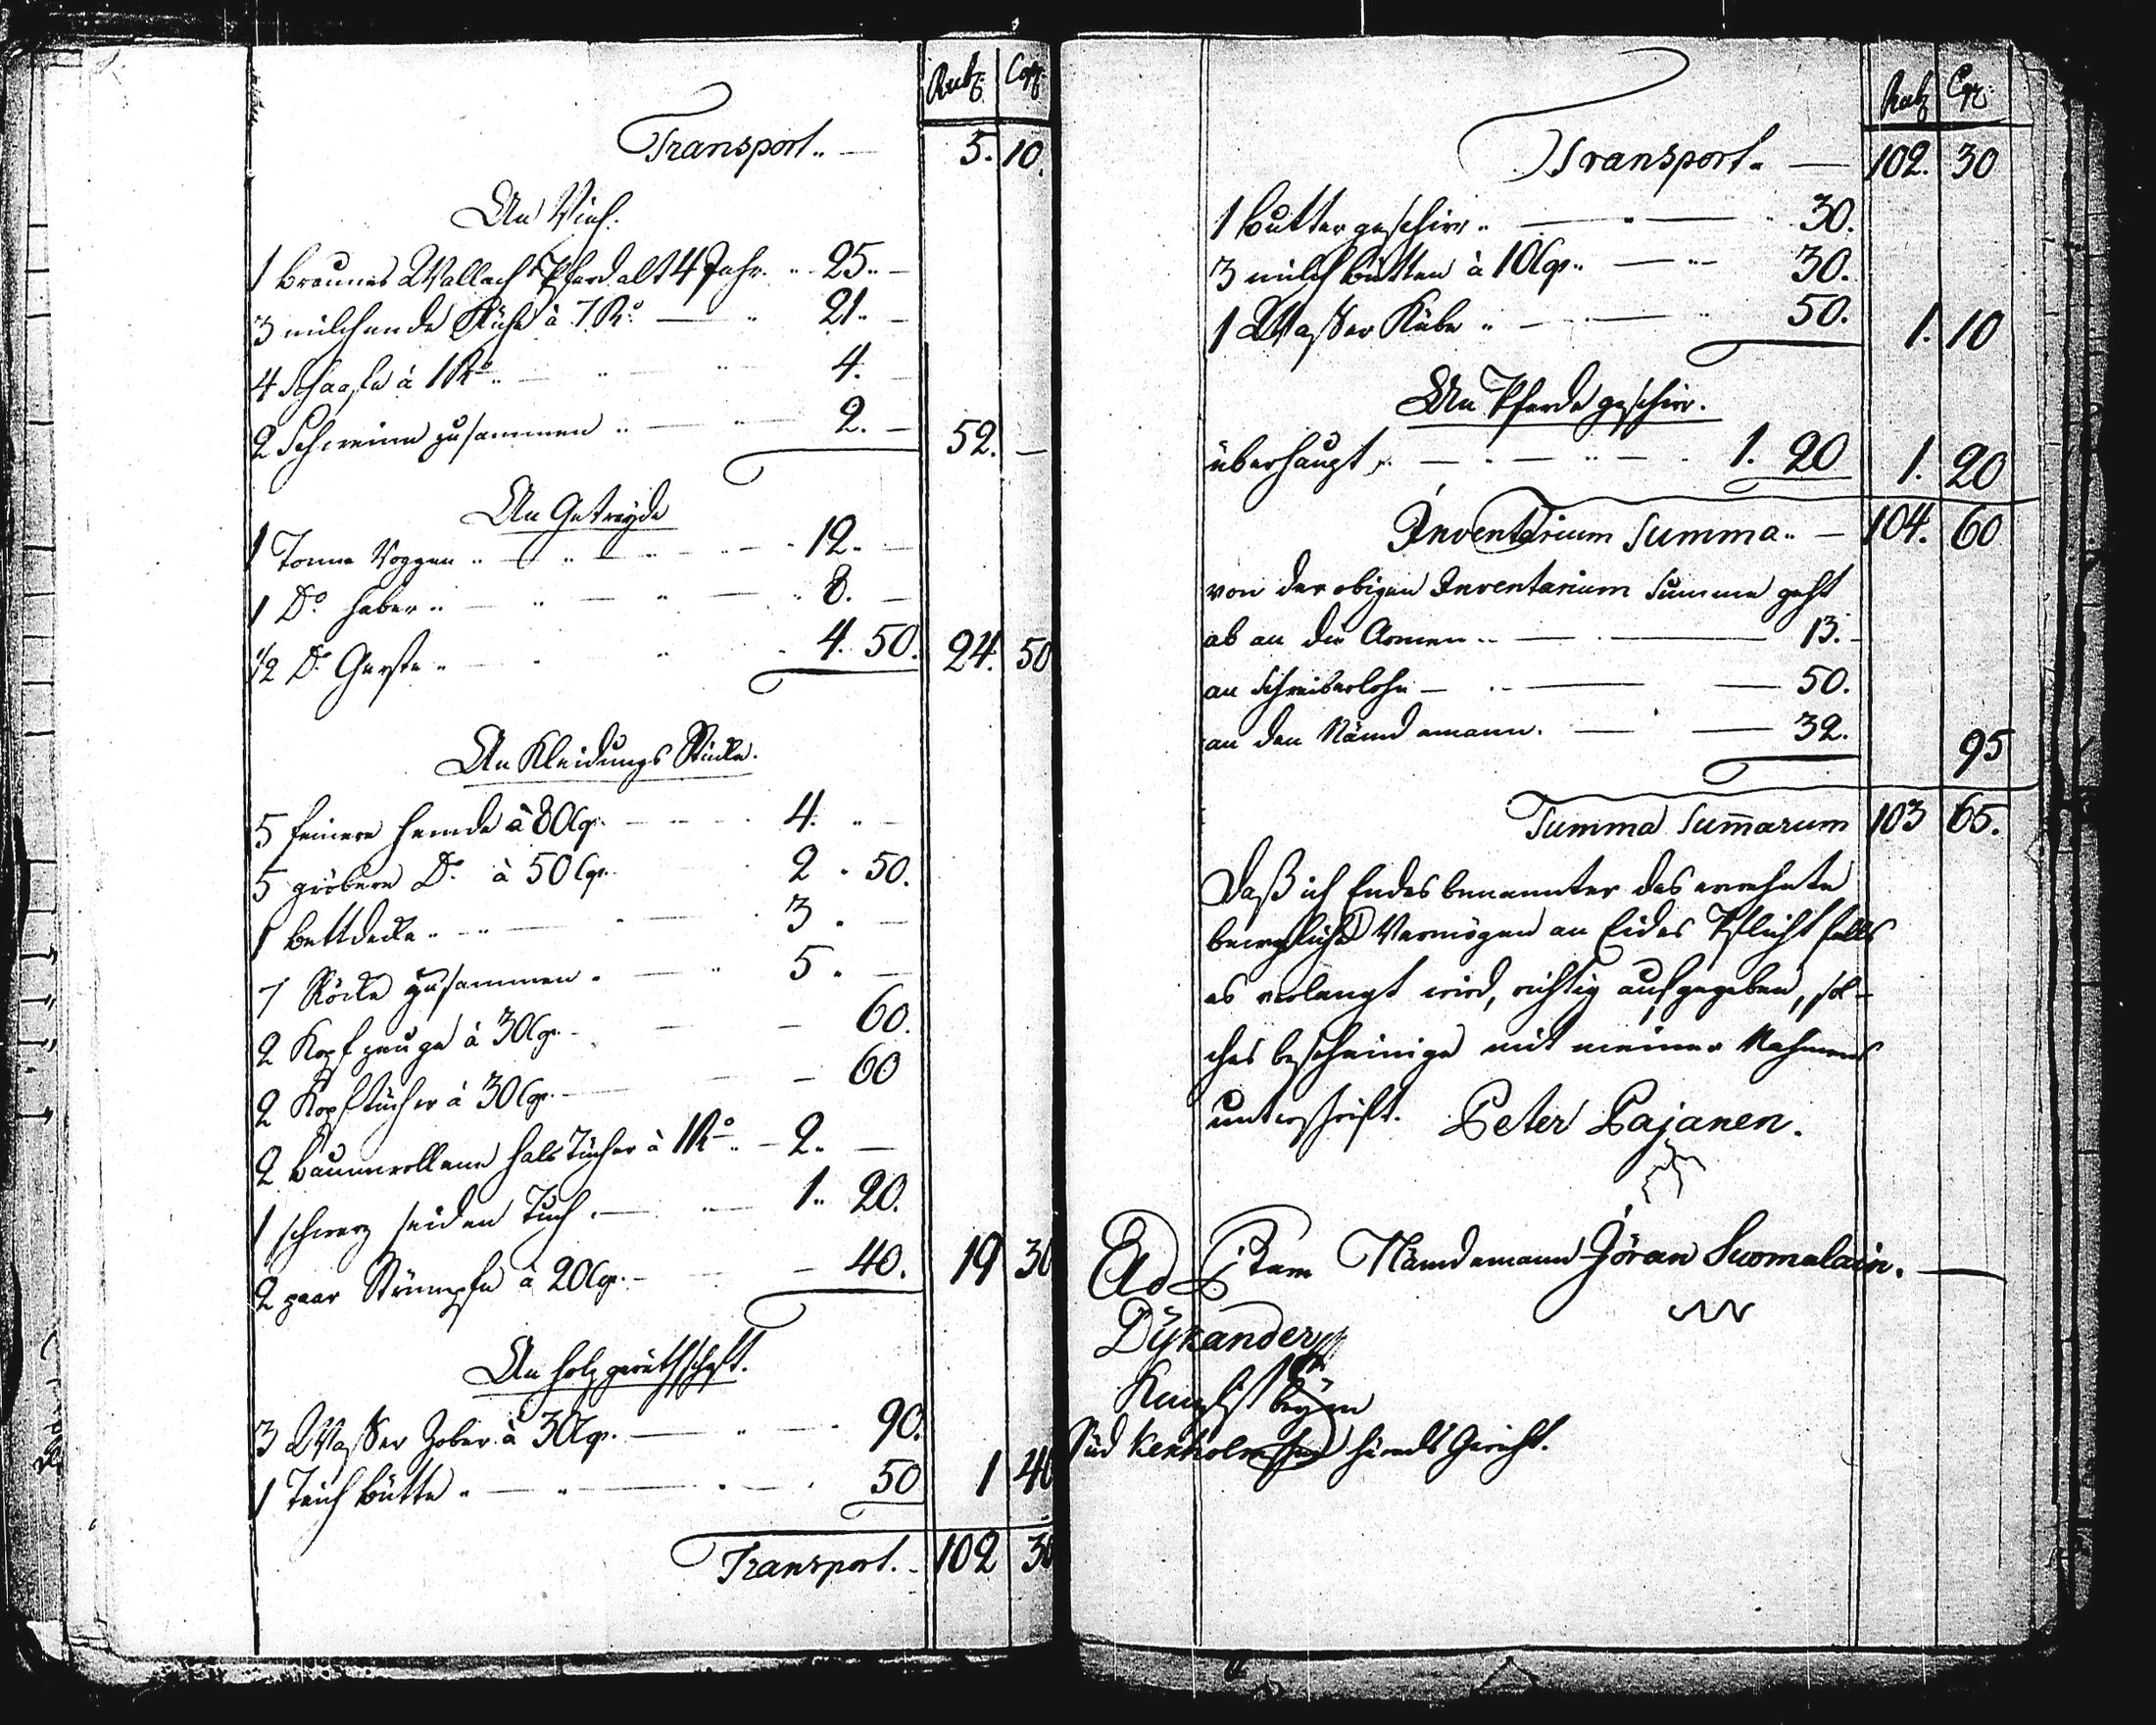 Rub. Cop.
Transport.. — 5. 10.
An Vieh.
1 braunes Wallach Pferd alt 4 Jahr. .. 25.. —
3 milchende Kühe à 7 Ro. — .. 21.. —
4 Schaafe à 1 Ro.. — .. — .. 4. —
2 Schweine zusammen .. — .. — 2. — 52. —
An Getreyde
1 Tonne Roggen .. — .. — .. — 12. —
1 Do haber .. — .. — .. — 8. —
1/2 Do Gerste .. — .. 4. 50. 24. 50
An Kleidungs Stücke.
5 feinere hemde à 80 Cp. — .. — 4. .. —
5 gröbere Do à 50 Cp. 2 . 50.
1 bettdecke .. .. — 3 . —
7 Röcke zusammen . — .. 5 . —
2 Kopfzeuge à 30 Cp. — — 60.
2 Kopftücher à 30 Cp. — — 60
2 baumwollene halstücher à 1 Ro .. — 2. —
1 schwarz seiden Tuch . — .. — 1.. 20.
2 paar Strümpfe à 20 Cp. — — 40. 19 30
An holzgeräthschaft.
3 Wasser Zober à 30 Cp. — .. — 90.
1 Teich bütte .. — .. — . 50 1 40
Transport. 102 30
Rub Cop.
Transport. — 102. 30
1 buttergeschirr .. — .. — 30.
3 milch bütten à 10 Cp.. — .. 30.
1 Wasser Kübe .. — .. — 50. 1. 10
An Pferde geschirr.
überhaupt .. — .. — .. — 1. 20 1. 20
Inventarium Summa .. — 104. 60
von der obigen Inventarium Summe geht
ab an die Armen .. — . — 13. —
an Schreiberlohn — .. — — 50.
an den Nämdemann. — . — 32. 95
Summa Summarum 103 65.
Daß ich Endesbenannter das
bewegliche Vermögen an Eides Pflicht falls
es verlangt wird, richtig aufgegeben, sol-
ches bescheinige mit meiner Nahmens
unterschrift. Peter Pajanen.
Ad Nämdemann Jöran Suomalain. —
Dyzander
beym
Süd Kexholmschen härads Gericht.